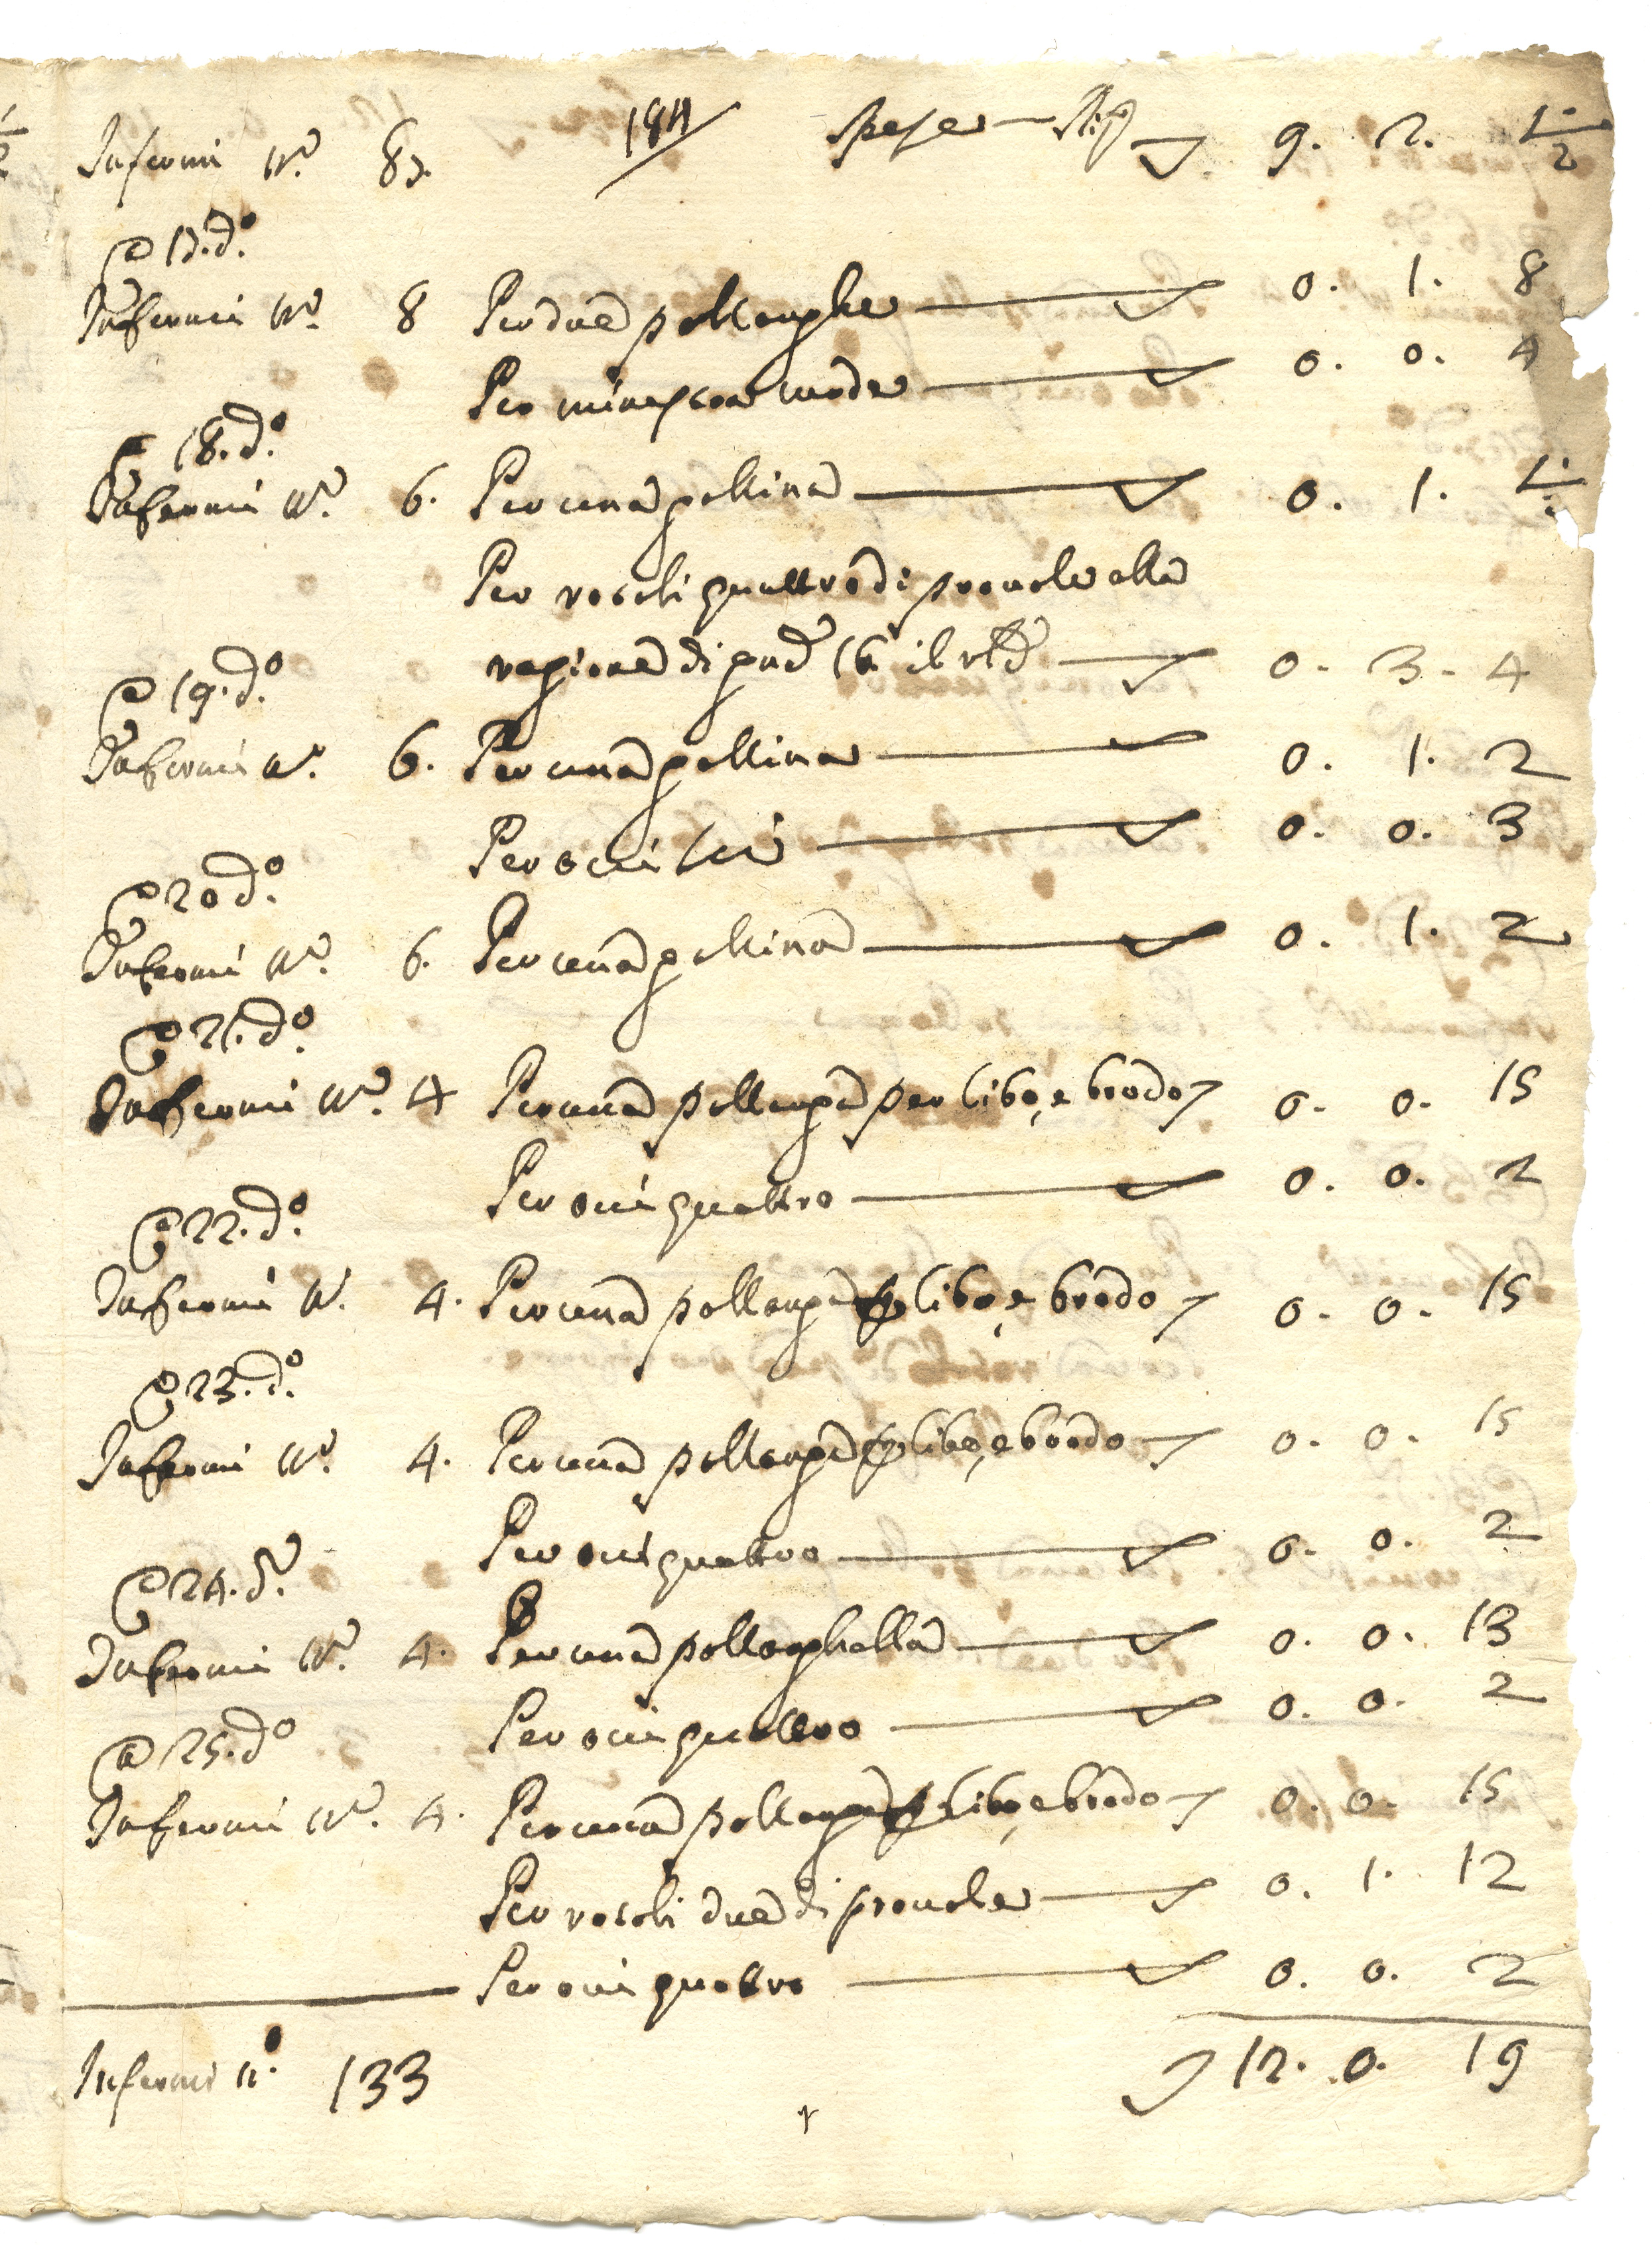 Infermi n.º 87. 184 spese — 9. 2. 1/2
@ 17. dº
Infermi n.º 8 Per due pollanghe 0. 1. 8
Per minestra verde 0. 0. 4
@ 18. dº
Infermi n.º 6. Per una gallina 0. 1.
Per rotoli quattro di provole alla
ragione di gna 16 il 0. 3. 4
@ 19. dº
Infermi n.º 6. Per una gallina 0. 1. 2
Per ovi sei 0. 0. 3
@ 20 dº
Infermi n.º 6. Per una gallina 0. 1. 2
@ 21. dº
Infermi n.º 4 Per una pollanga per cibo, e brodo 0. 0. 15
Per ovi quattro 0. 0. 2
@ 22. dº
Infermi n. 4. Per una pollanga p cibo, e brodo 0. 0. 15
@ 23. dº
Infermi n.º 4. Per una pollanga p cibo, e brodo 0. 0. 15
Per ovi quattro 0. 0. 2
@ 24. dº
Infermi n.º 4. Per una pollanghella 0. 0. 13
Per ovi quattro 0. 0. 2
@ 25. dº
Infermi n.º 4. Per una pollanga p cibo, e brodo 0. 0. 15
Per rotoli due di provole 0. 1. 12
Per ovi quattro 0. 0. 2
Infermi n.º 133 12. 0. 19